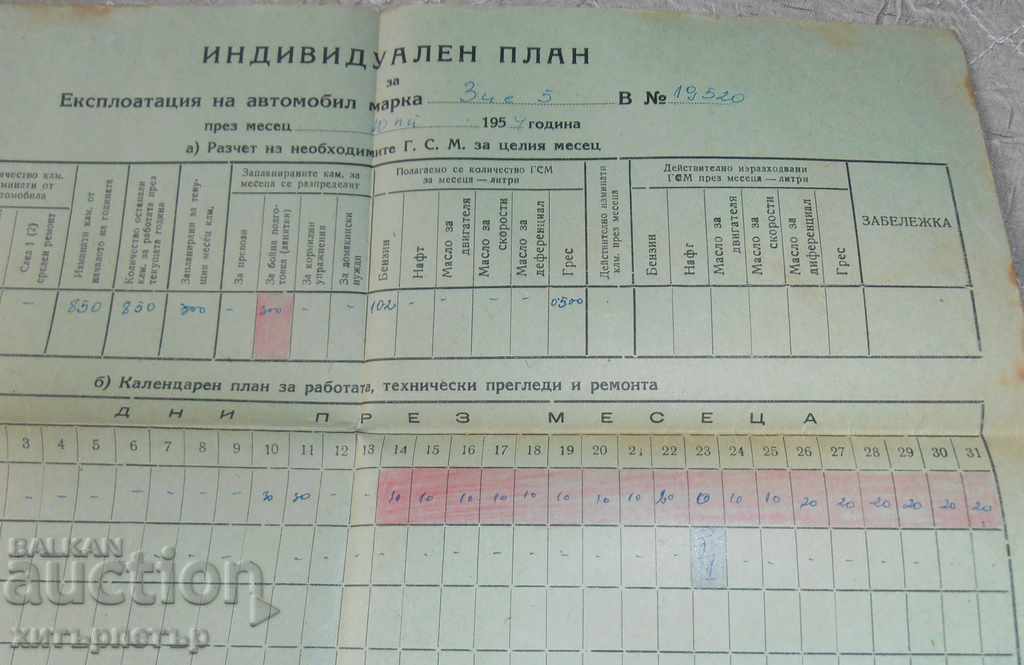 ИНДИВИДУАЛЕН ПЛАН
за
Експлоатация на автомобил марка Зис 5 В № 19520
през месец юли 1954 година
а) Разчет на необходимите Г. С. М. за целия месец
Количество кам. Запланираните кам. за Полагаемо се количество ГСМ Действително изразходвани
минати от месеца се разпределят за месеца — литри ГСМ през месеца — литри
автомобила
След 1 (2) среден ремонт
Изминати кам. от началото на годината
Количество останали кам. за работата през текущата година
Запланирани за текущия месец клм.
За превози
За бойна подготовка (занятия)
За кормилни упражнения
За домакински нужди
Бензин
Нафт
Масло за двигателя
Масло за скорости
Масло за деференциал
Грес
Действително изминати кам. през месеца
Бензин
Нафт
Масло за двигателя
Масло за скорости
Масло за диференциал
Грес
ЗАБЕЛЕЖКА
- 850 850 300 - 300 - - 102 - - - - 0500
б) Календарен план за работата, технически прегледи и ремонта
ДНИ ПРЕЗ МЕСЕЦА
3 4 5 6 7 8 9 10 11 12 13 14 15 16 17 18 19 20 21 22 23 24 25 26 27 28 29 30 31
- - - - - - - 30 30 - - 10 10 10 10 10 10 10 10 20 10 10 10 20 20 20 20 20 20
BALKAN
auction
хитърпетър